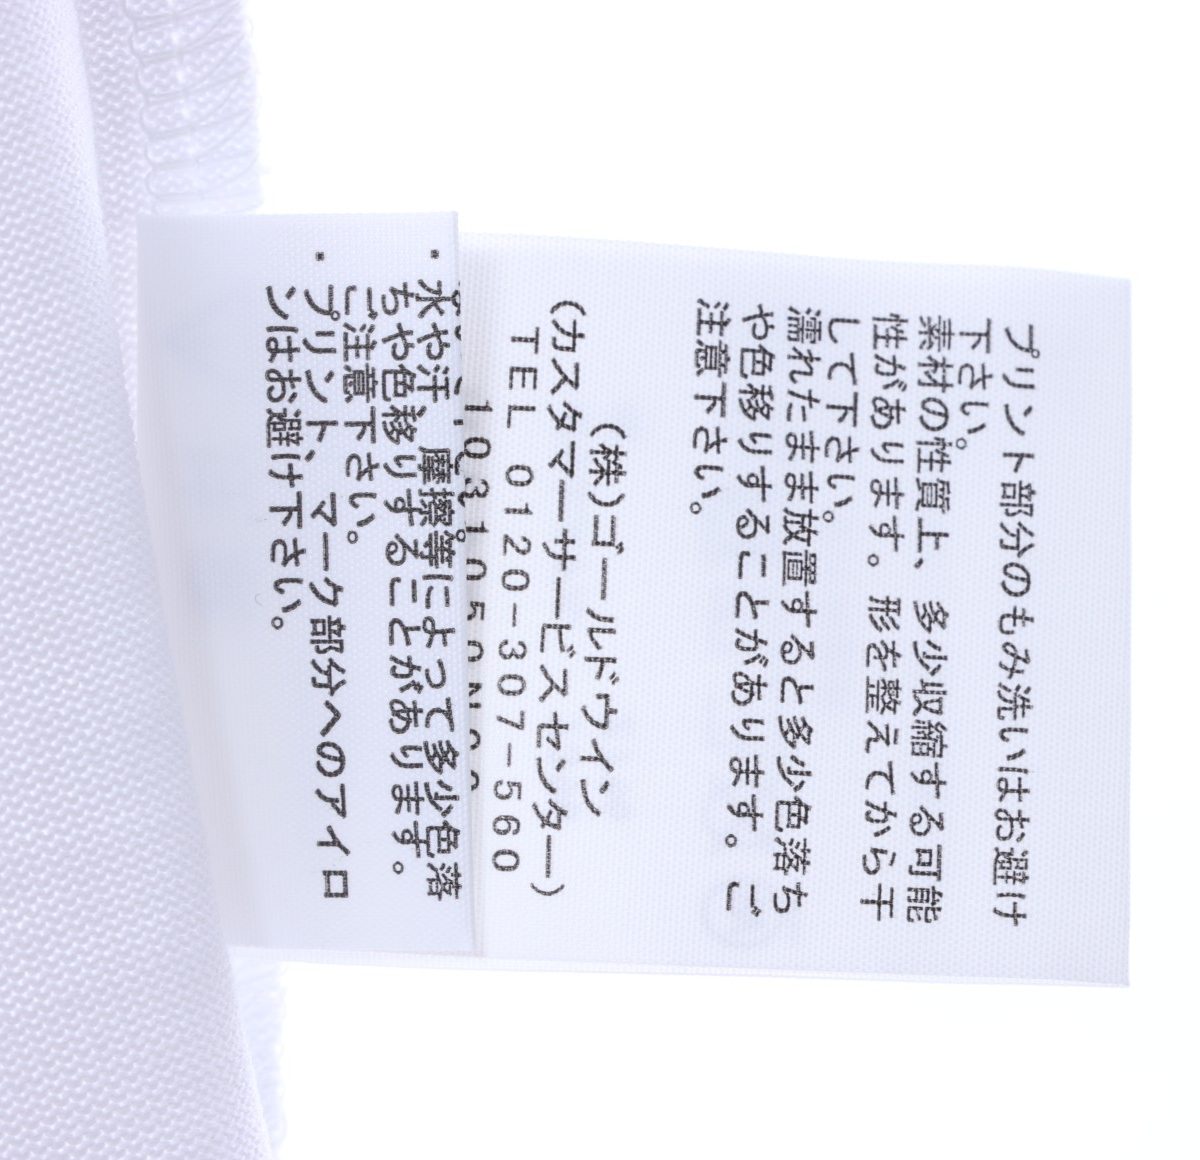 プリント部分のもみ洗いはお避け
下さい。
素材の性質上、多少収縮する可能
性があります。形を整えてから干
して下さい。
濡れたまま放置すると多少色落ち
や色移りすることがあります。ご
注意下さい。
(株)ゴールドウイン
(カスタマーサービスセンター)
TEL 0120-307-560
・水や汗、摩擦等によって多少色落
ちや色移りすることがあります。
ご注意下さい。
・プリント、マーク部分へのアイロ
ンはお避け下さい。